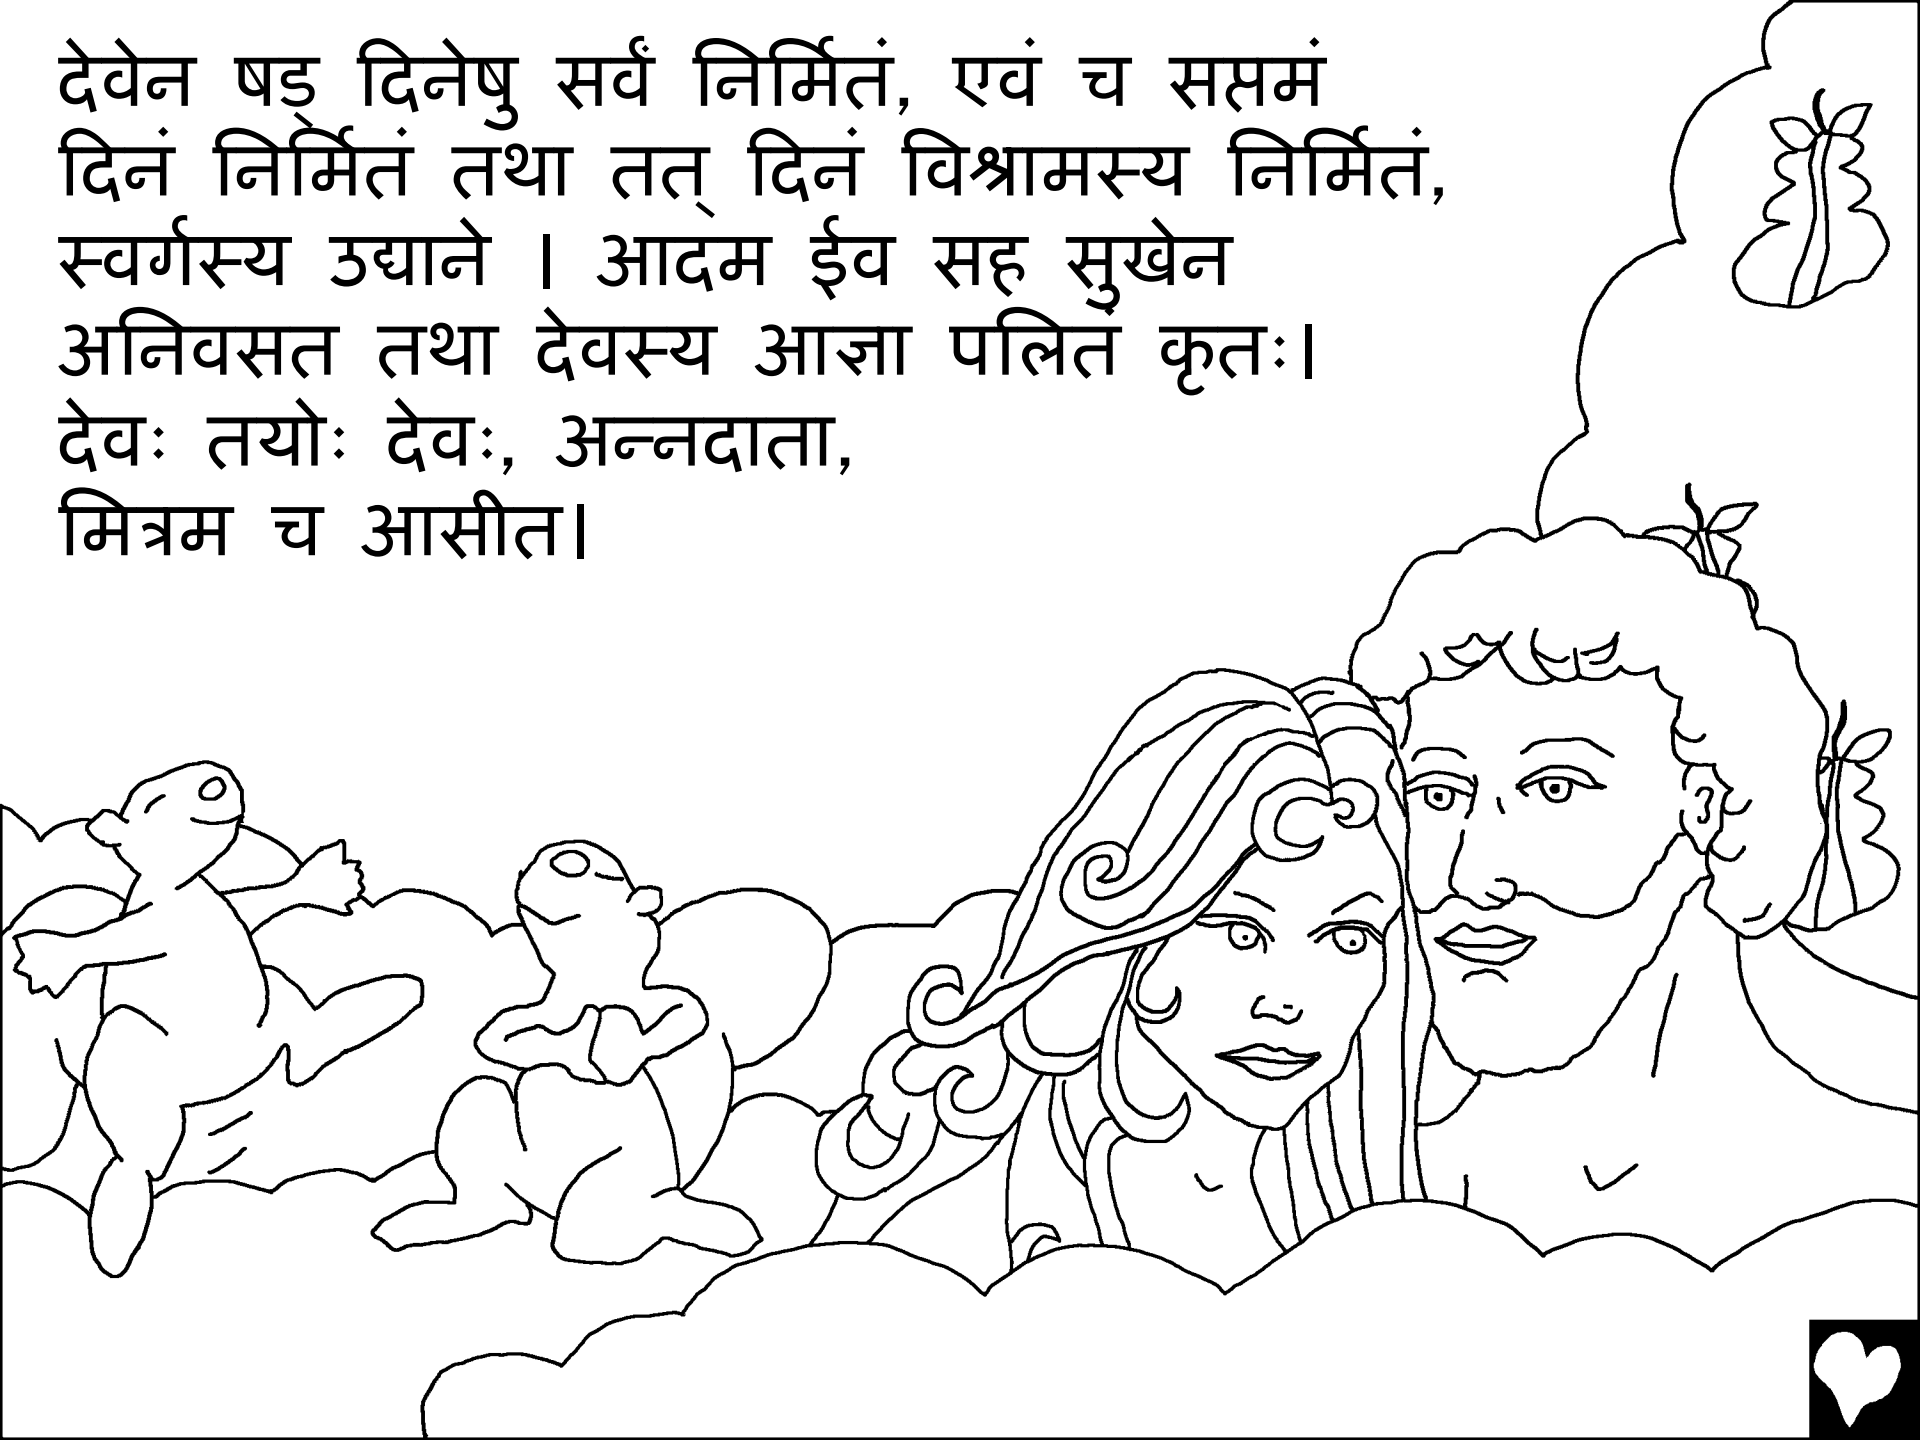 देवेन षड् दिनेषु सर्वं निर्मितं, एवं च सप्तमं
दिनं निर्मितं तथा तत् दिनं विश्रामस्य निर्मितं,
स्वर्गस्य उद्याने । आदम ईव सह सुखेन
अनिवसत तथा देवस्य आज्ञा पलितं कृतः।
देवः तयोः देवः, अन्नदाता,
मित्रम च आसीत।